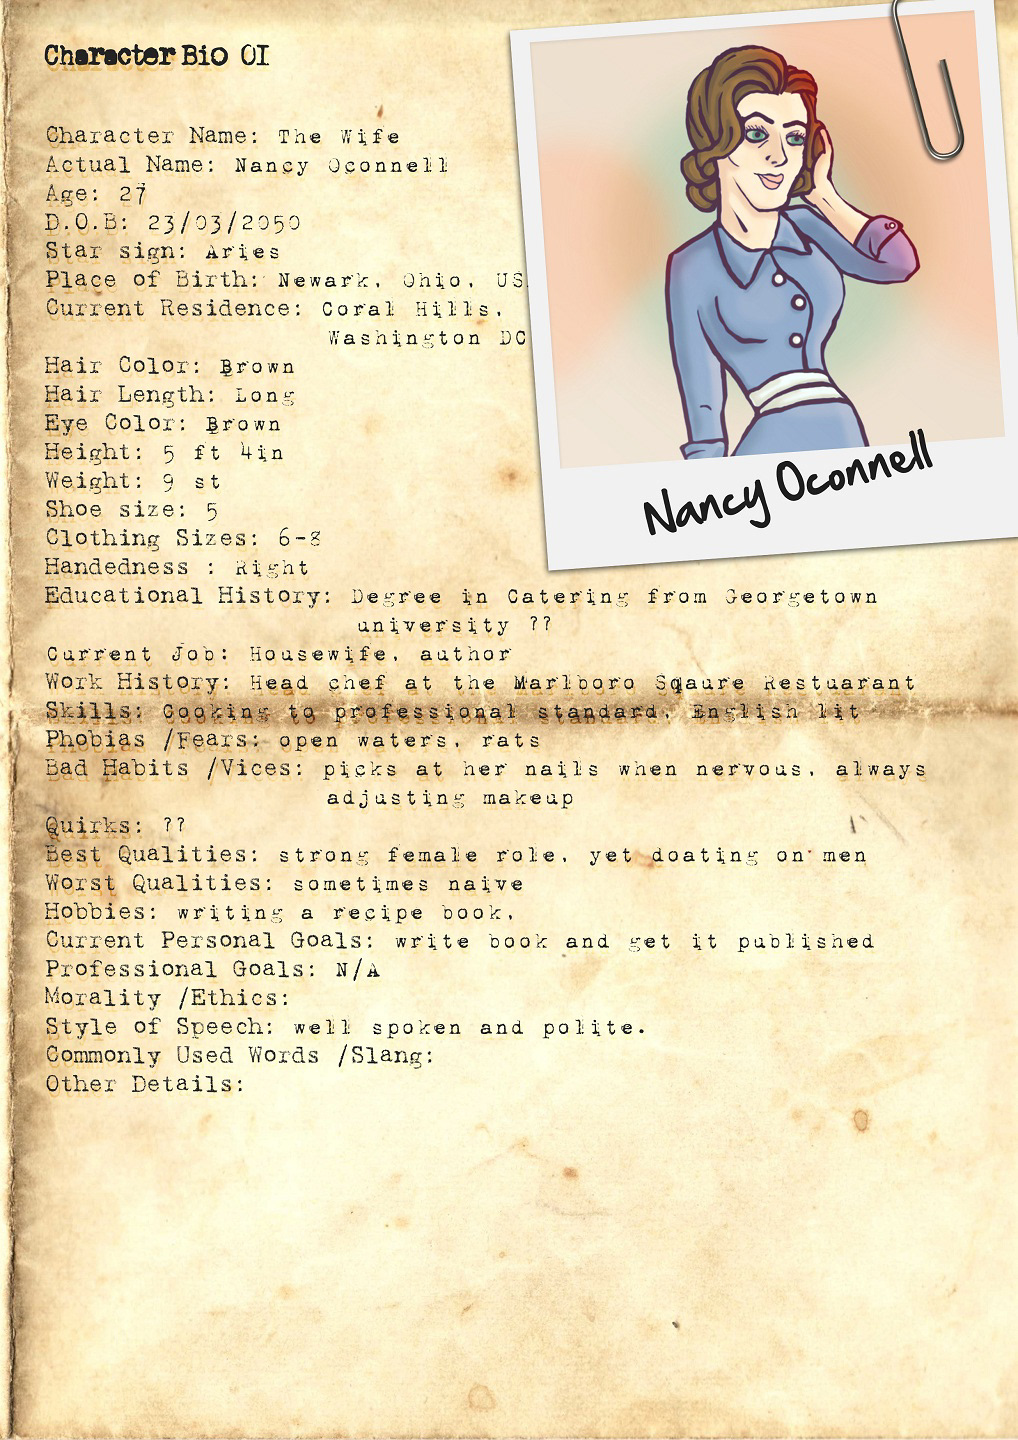 Character Bio 01
Character Name: The Wife
Actual Name: Nancy Oconnell
Age: 27
D.O.B: 23/03/2050
Star sign: Aries
Place of Birth: Newark, Ohio, US
Current Residence: Coral Hills,
Washington DC
Hair Color: Brown
Hair Length: Long
Eye Color: Brown
Height: 5 ft 4in
Weight: 9 st
Shoe size: 5
Clothing Sizes: 6-8
Handedness : Right
Educational History: Degree in Catering from Georgetown
university ??
Current Job: Housewife, author
Work History: Head chef at the Marlboro Sqaure Restuarant
Skills: Cooking to professional standard, English lit
Phobias /Fears: open waters, rats
Bad Habits /Vices: picks at her nails when nervous, always
adjusting makeup
Quirks: ??
Best Qualities: strong female role, yet doating on men
Worst Qualities: sometimes naive
Hobbies: writing a recipe book,
Current Personal Goals: write book and get it published
Professional Goals: N/A
Morality /Ethics:
Style of Speech: well spoken and polite.
Commonly Used Words /Slang:
Other Details:
Nancy Oconnell